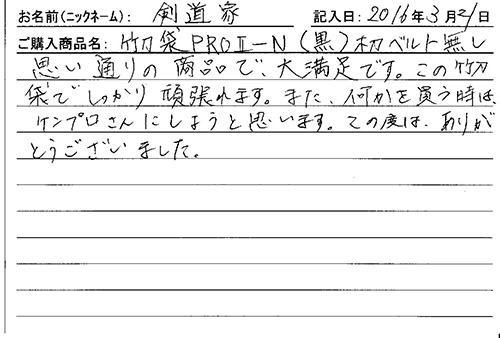 お名前(ニックネーム): 剣道家 記入日: 2016年3月21日
ご購入商品名: 竹刀袋PROⅡ-N(黒)木刀ベルト無し
思い通りの商品で、大満足です。この竹刀
袋でしっかり頑張れます。また、何かを買う時は、
ケンプロさんにしようと思います。この度は、ありが
とうございました。